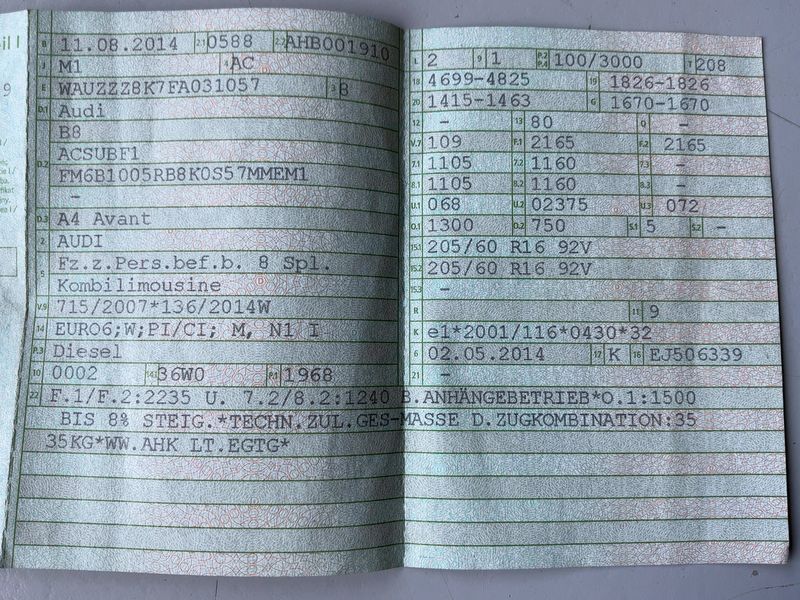 B 11.08.2014 2.1 0588 2.2 AHB001910
J M1 4 AC
E WAUZZZ8K7FA031057 3 B
D.1 Audi
B8
D.2 ACSUBF1
FM6B1005RB8K0S57MMEM1
-
D.3 A4 Avant
2 AUDI
5 Fz.z.Pers.bef.b. 8 Spl.
Kombilimousine
V.9 715/2007*136/2014W
14 EURO6;W;PI/CI; M, N1 I
P.3 Diesel
10 0002 14.1 36W0 P.1 1968
L 2 9 1 P.2 P.4 100/3000 T 208
18 4699-4825 19 1826-1826
20 1415-1463 G 1670-1670
12 - 13 80 Q -
V.7 109 F.1 2165 F.2 2165
7.1 1105 7.2 1160 7.3 -
8.1 1105 8.2 1160 8.3 -
U.1 068 U.2 02375 U.3 072
O.1 1300 O.2 750 S.1 5 S.2 -
15.1 205/60 R16 92V
15.2 205/60 R16 92V
15.3 -
R 11 9
K e1*2001/116*0430*32
6 02.05.2014 17 K 16 EJ506339
21 -
22 F.1/F.2:2235 U. 7.2/8.2:1240 B.ANHÄNGEBETRIEB*O.1:1500
BIS 8% STEIG.*TECHN.ZUL.GES-MASSE D.ZUGKOMBINATION:35
35KG*WW.AHK LT.EGTG*